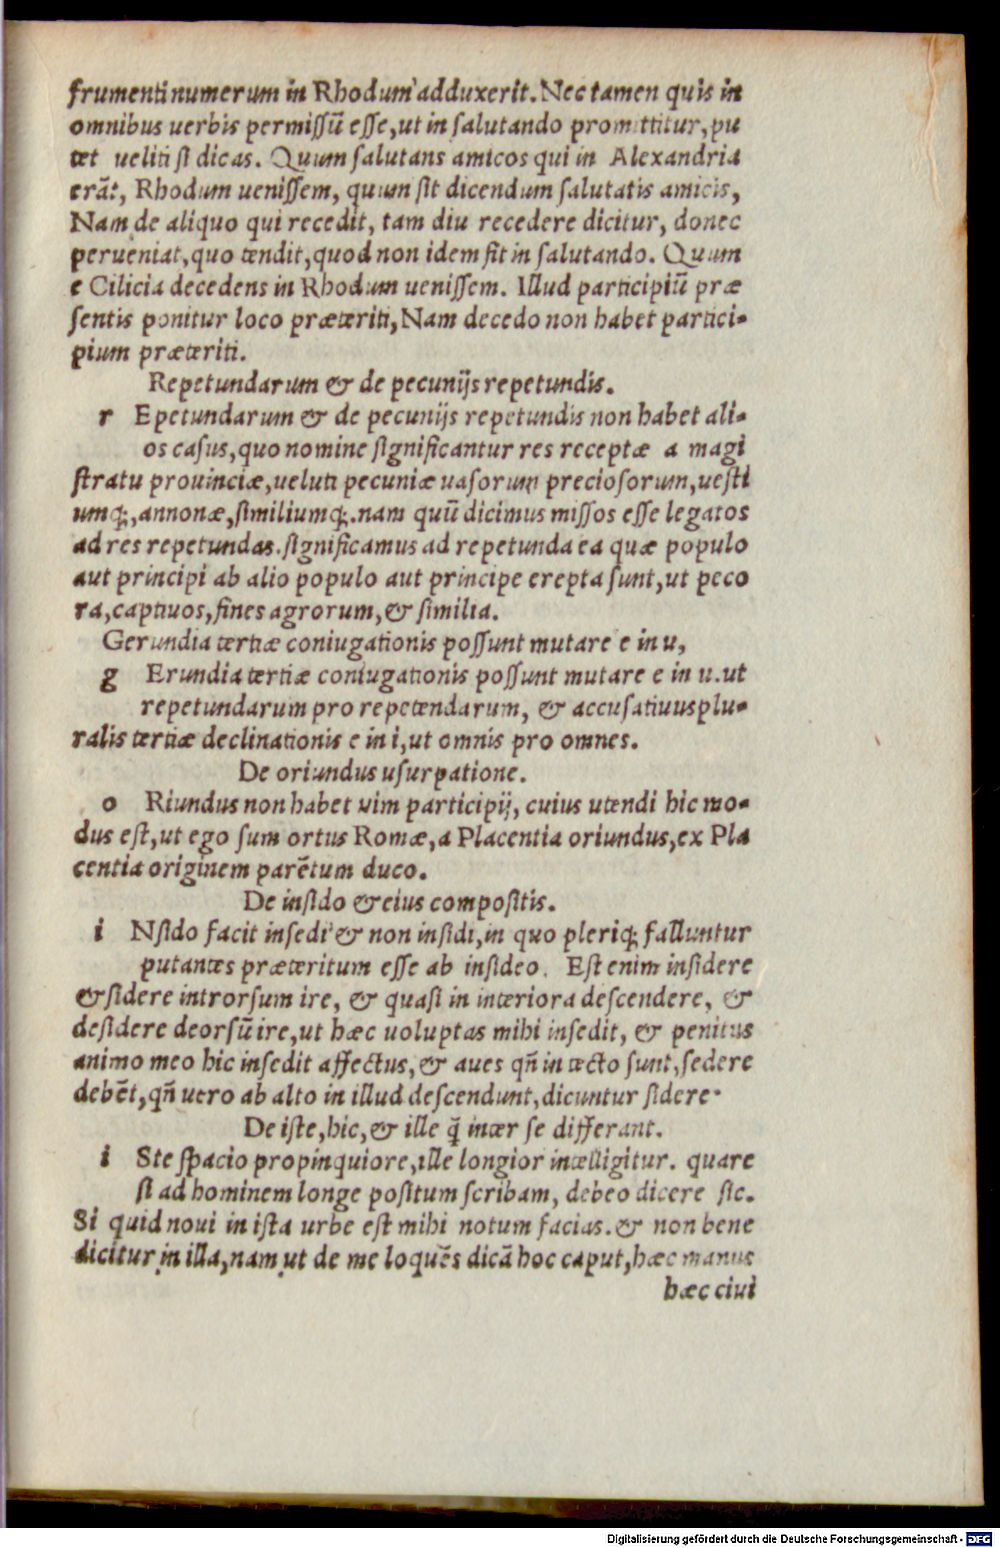 frumenti numerum in Rhodum adduxerit. Nec tamen quis in
omnibus uerbis permiſſũ eſſe, ut in ſalutando promittitur, pu
tet ueliti ſi dicas. Quum ſalutans amicos qui in Alexandria
erãt, Rhodum ueniſſem, quum ſit dicendum ſalutatis amicis,
Nam de aliquo qui recedit, tam diu recedere dicitur, donec
perueniat, quo tendit, quod non idem fit in ſalutando. Quum
e Cilicia decedens in Rhodum ueniſſem. Illud participiũ præ
ſentis ponitur loco præteriti, Nam decedo non habet partici-
pium præteriti.
Repetundarum & de pecunijs repetundis.
r Epetundarum & de pecunijs repetundis non habet ali-
os caſus, quo nomine ſignificantur res receptæ a magi
ſtratu prouinciæ, ueluti pecuniæ uaſorum precioſorum, ueſti
umq́;, annonæ, ſimiliumq́;. nam quũ dicimus miſſos eſſe legatos
ad res repetundas. ſignificamus ad repetunda ea quæ populo
aut principi ab alio populo aut principe erepta ſunt, ut peco
ra, captiuos, fines agrorum, & ſimilia.
Gerundia tertiæ coniugationis poſſunt mutare e in u,
g Erundia tertiæ coniugationis poſſunt mutare e in u. ut
repetundarum pro repetendarum, & accuſatiuus plu-
ralis tertiæ declinationis e in i, ut omnis pro omnes.
De oriundus uſurpatione.
o Riundus non habet uim participij, cuius utendi hic mo-
dus eſt, ut ego ſum ortus Romæ, a Placentia oriundus, ex Pla
centia originem parẽtum duco.
De inſido & eius compoſitis.
i Nſido facit inſedi & non inſidi, in quo pleriq́; falluntur
putantes præteritum eſſe ab inſideo. Eſt enim inſidere
& ſidere introrſum ire, & quaſi in interiora deſcendere, &
deſidere deorſũ ire, ut hæc uoluptas mihi inſedit, & penitus
animo meo hic inſedit affectus, & aues qñ in tecto ſunt, ſedere
debẽt, qñ uero ab alto in illud deſcendunt, dicuntur ſidere.
De iſte, hic, & ille q̃ inter ſe differant.
i Ste ſpacio propinquiore, ille longior intelligitur. quare
ſi ad hominem longe poſitum ſcribam, debeo dicere ſic.
Si quid noui in iſta urbe eſt mihi notum facias. & non bene
dicitur in illa, nam ut de me loquẽs dicã hoc caput, hæc manus
hæc ciui
Digitalisierung gefördert durch die Deutsche Forschungsgemeinschaft - DFG